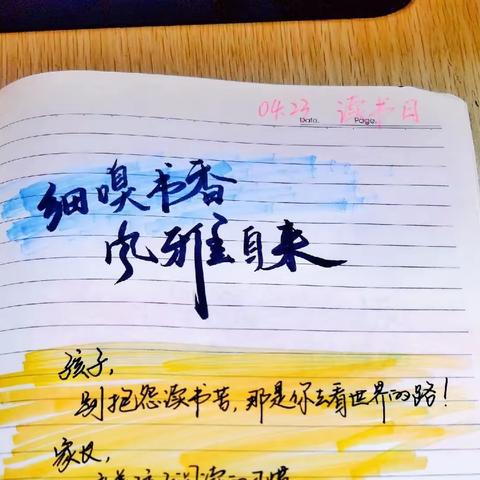 04.23 读书日
Date. Page.
细嗅书香
风雅自来
孩子,
别抱怨读书苦,那是你去看世界的路!
家长,